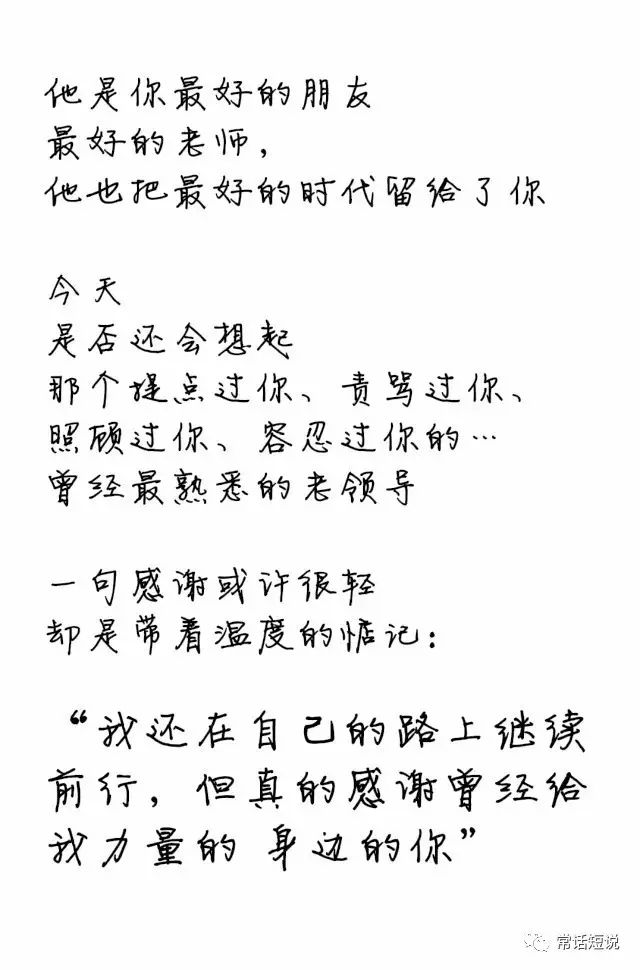 他是你最好的朋友
最好的老师，
他也把最好的时代留给了你
今天
是否还会想起
那个提点过你、责骂过你、
照顾过你、容忍过你的…
曾经最熟悉的老领导
一句感谢或许很轻
却是带着温度的惦记：
“我还在自己的路上继续
前行，但真的感谢曾经给
我力量的 身边的你”
常话短说